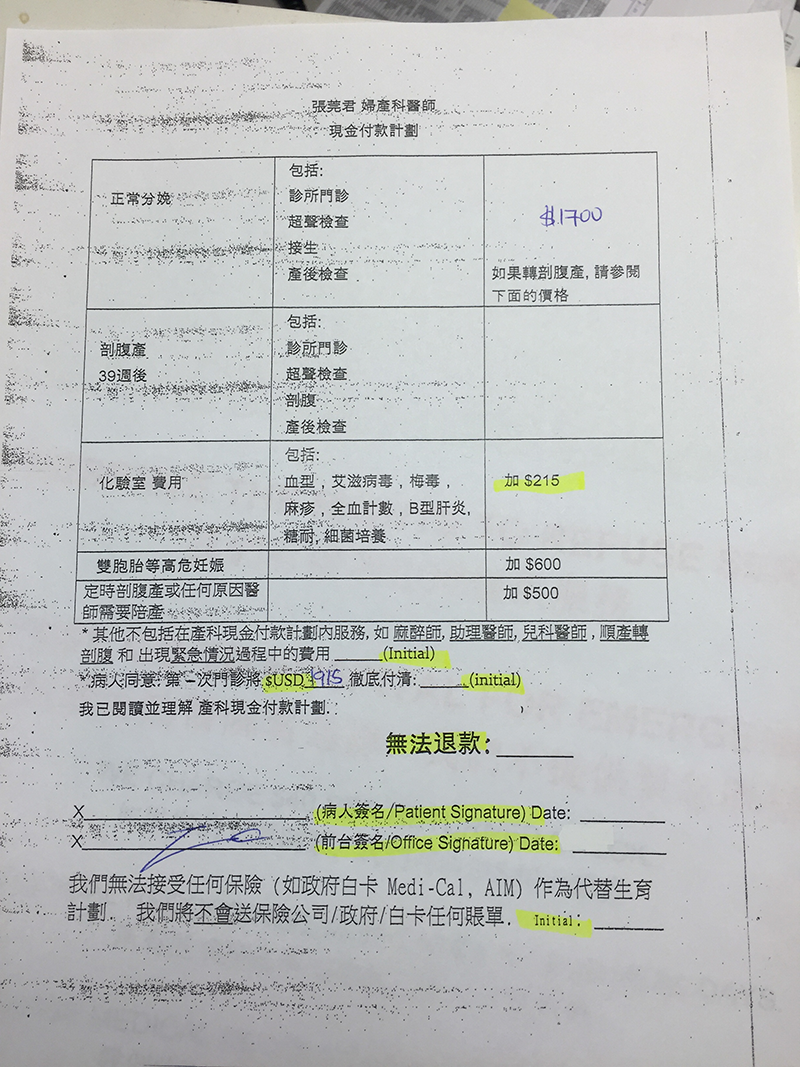 張莞君 婦產科醫師
現金付款計劃
正常分娩
包括:
診所門診
超聲檢查
接生
產後檢查
$1700
如果轉剖腹產, 請參閱
下面的價格
剖腹產
39週後
包括:
診所門診
超聲檢查
剖腹
產後檢查
化驗室 費用
包括:
血型 , 艾滋病毒 , 梅毒 ,
麻疹 , 全血計數 , B型肝炎,
糖耐, 細菌培養
加 $215
雙胞胎等高危妊娠
加 $600
定時剖腹產或任何原因醫
師需要陪產
加 $500
* 其他不包括在產科現金付款計劃內服務, 如 麻醉師, 助理醫師, 兒科醫師 , 順產轉
剖腹 和 出現緊急情況過程中的費用 _____(Initial)
* 病人同意: 第一次門診將 $USD 1915 徹底付清: _____(initial)
我已閱讀並理解 產科現金付款計劃.
無法退款: ______
X____________ (病人簽名/Patient Signature) Date: ______
X____________ (前台簽名/Office Signature) Date: ______
我們無法接受任何保險 (如政府白卡 Medi-Cal, AIM) 作為代替生育
計劃. 我們將不會送保險公司/政府/白卡任何賬單. Initial: ______